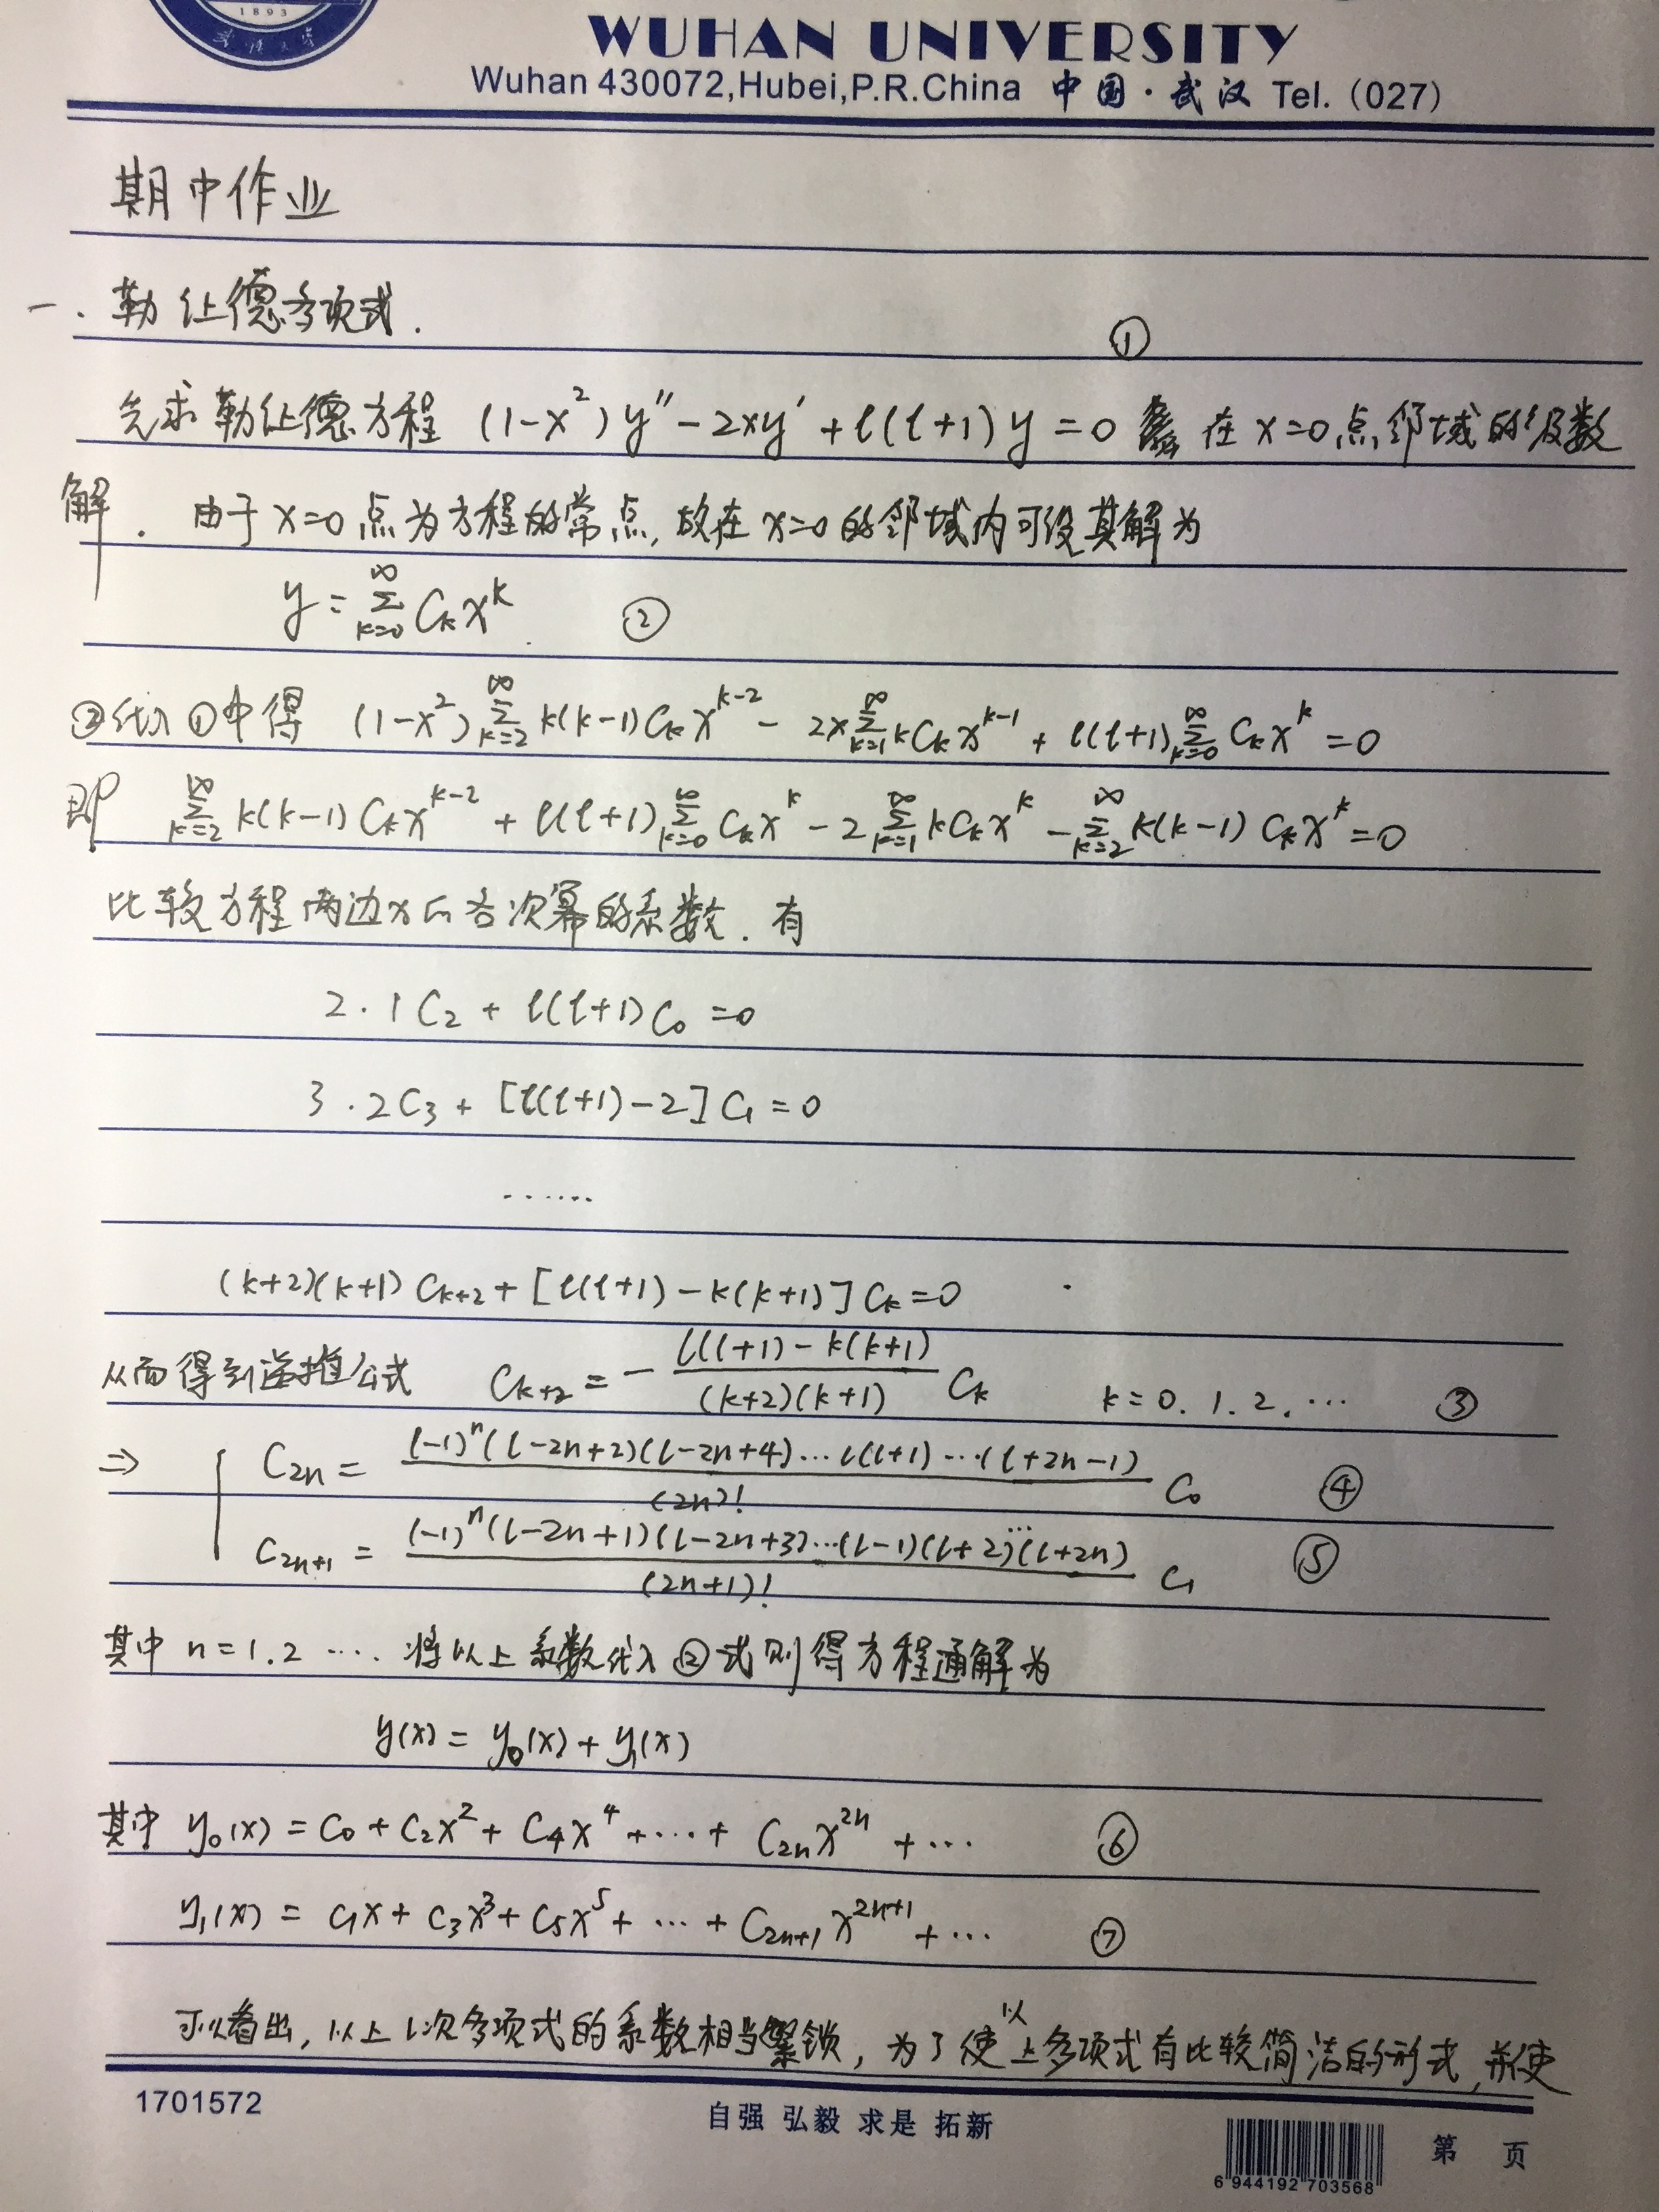 1893
武汉大学
WUHAN UNIVERSITY
Wuhan 430072,Hubei,P.R.China 中国·武汉 Tel. (027)
期中作业
一.勒让德多项式.
①
先求勒让德方程 (1-x²)y″-2xy′+l(l+1)y=0 在x=0点邻域的级数
解. 由于x=0点为方程的常点,故在x=0的邻域内可设其解为
y=∑_{k=0}^{∞} C_k x^k. ②
②代入①中得 (1-x²)∑_{k=2}^{∞} k(k-1)C_k x^{k-2} - 2x∑_{k=1}^{∞} kC_k x^{k-1} + l(l+1)∑_{k=0}^{∞} C_k x^k =0
即 ∑_{k=2}^{∞} k(k-1)C_k x^{k-2} + l(l+1)∑_{k=0}^{∞} C_k x^k - 2∑_{k=1}^{∞} kC_k x^k - ∑_{k=2}^{∞} k(k-1)C_k x^k =0
比较方程两边x的各次幂的系数.有
2·1C₂ + l(l+1)C₀ =0
3·2C₃ + [l(l+1)-2]C₁ =0
......
(k+2)(k+1)C_{k+2} + [l(l+1)-k(k+1)]C_k =0
从而得到递推公式 C_{k+2} = - \frac{l(l+1)-k(k+1)}{(k+2)(k+1)} C_k k=0.1.2.… ③
⇒ { C_{2n} = \frac{(-1)^n(l-2n+2)(l-2n+4)…l(l+1)…(l+2n-1)}{(2n)!} C₀ ④
C_{2n+1} = \frac{(-1)^n(l-2n+1)(l-2n+3)…(l-1)(l+2)…(l+2n)}{(2n+1)!} C₁ ⑤
其中 n=1.2 …. 将以上系数代入②式则得方程通解为
y(x) = y₀(x)+y₁(x)
其中 y₀(x) = C₀+C₂x²+C₄x⁴+…+C_{2n}x^{2n}+… ⑥
y₁(x) = C₁x+C₃x³+C₅x⁵+…+C_{2n+1}x^{2n+1}+… ⑦
可以看出,以上l次多项式的系数相当繁锁,为了使以上多项式有比较简洁的形式,并使
1701572
自强 弘毅 求是 拓新
6 944192 703568
第 页